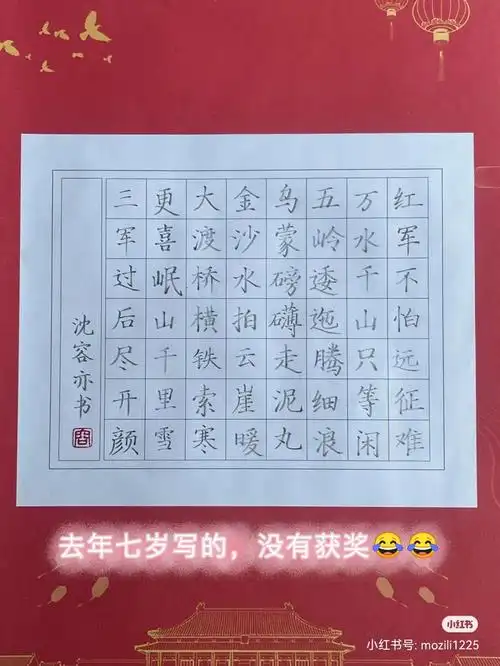 红军不怕远征难
万水千山只等闲
五岭逶迤腾细浪
鸟蒙磅礴走泥丸
金沙水拍云崖暖
大渡桥横铁索寒
更喜岷山千里雪
三军过后尽开颜
沈容亦书
去年七岁写的，没有获奖😂😂
小红书
小红书号: mozili1225